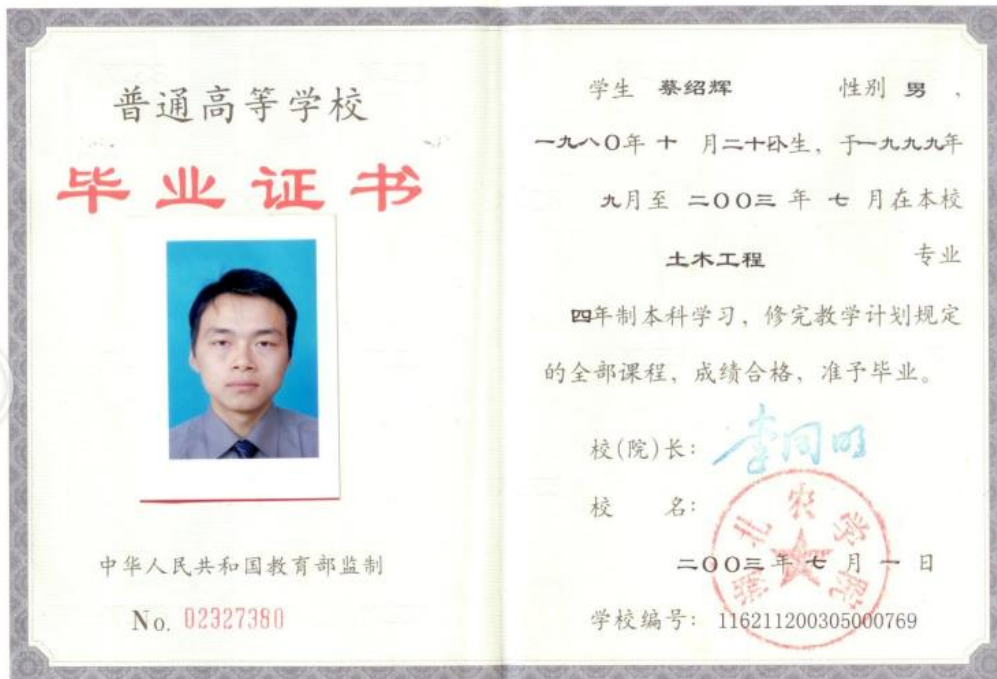 普通高等学校
毕业证书
中华人民共和国教育部监制
No. 02327380
学生 蔡绍辉 性别 男 ,
一九八〇年 十 月二十日出生, 于一九九九年
九月至 二〇〇三 年 七 月在本校
土木工程 专业
四年制本科学习, 修完教学计划规定
的全部课程, 成绩合格, 准予毕业。
校(院)长: 李同明
校 名:
北农学院
二〇〇三年 七 月 一 日
学校编号: 116211200305000769